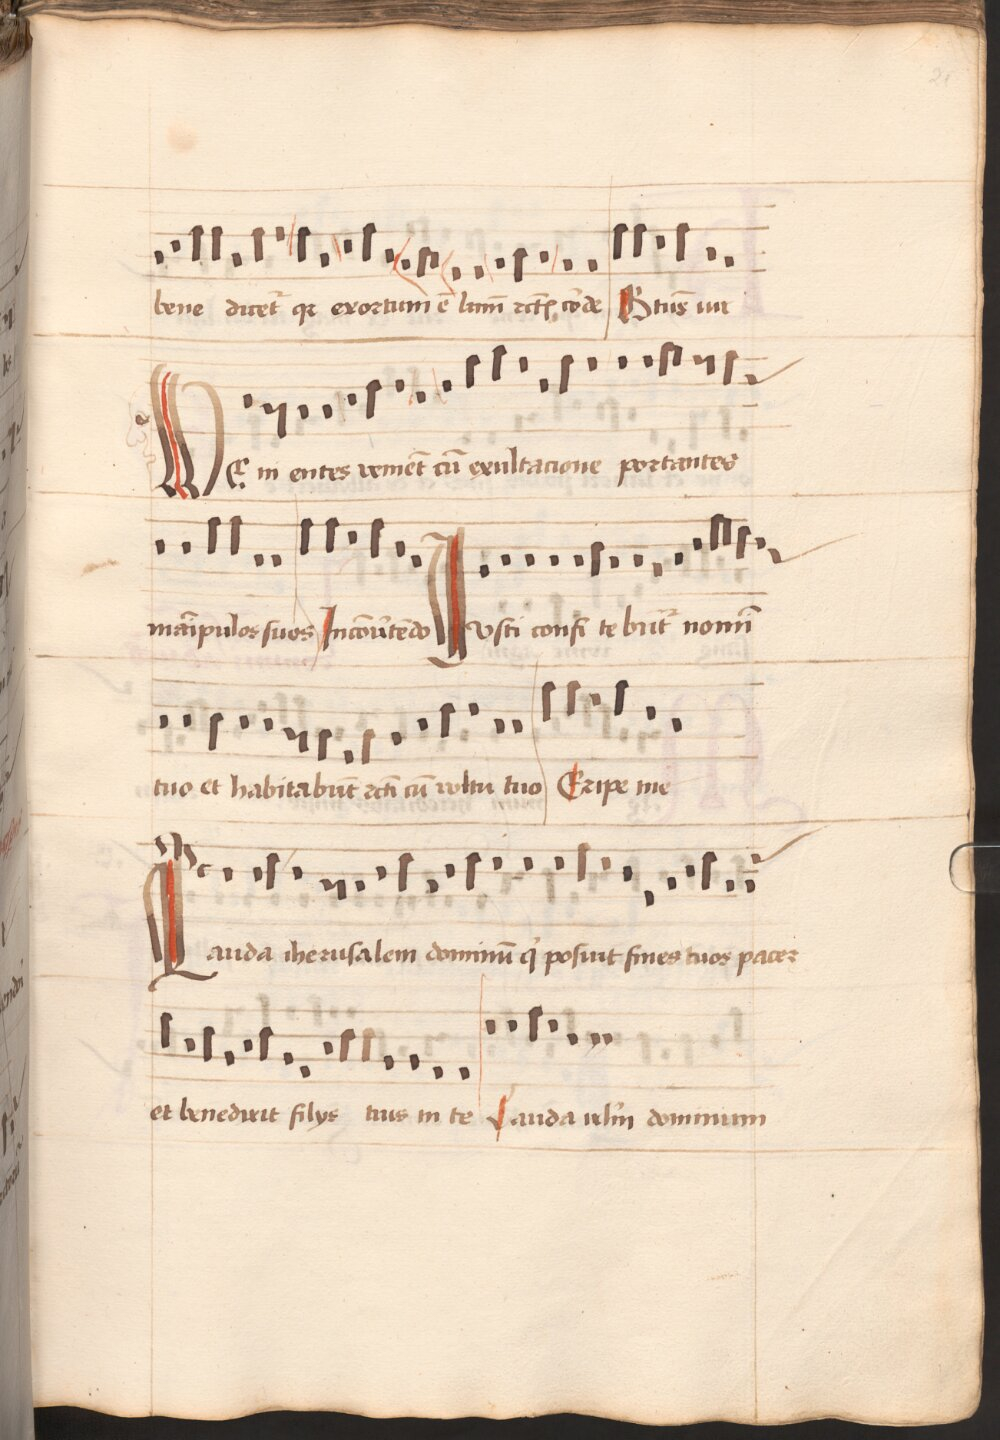 21
bene dicet᷑ qr exortum ē lum̄ rct̄ꝭ corde Btus̄ uir
UE in entes venient̄ cū exultacione portantes
manipulos suos In conv̄tēdo Iusti confi te bunt᷑ nomini
tuo et habitabūt rcti cū voltu tuo Eripe me
Lauda iherusalem dominū qi posuit fines tuos pacem
et benedixit filys tuis in te Lauda irl̄m dominum